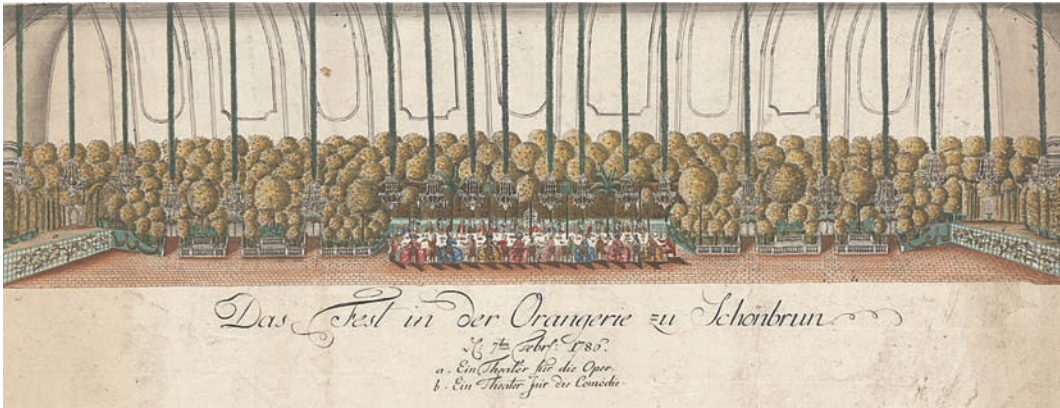 Das Fest in der Orangerie zu Schönbrun
7ten Febr: 1786.
a. Ein Theater für die Oper.
b. Ein Theater für die Comœdie.